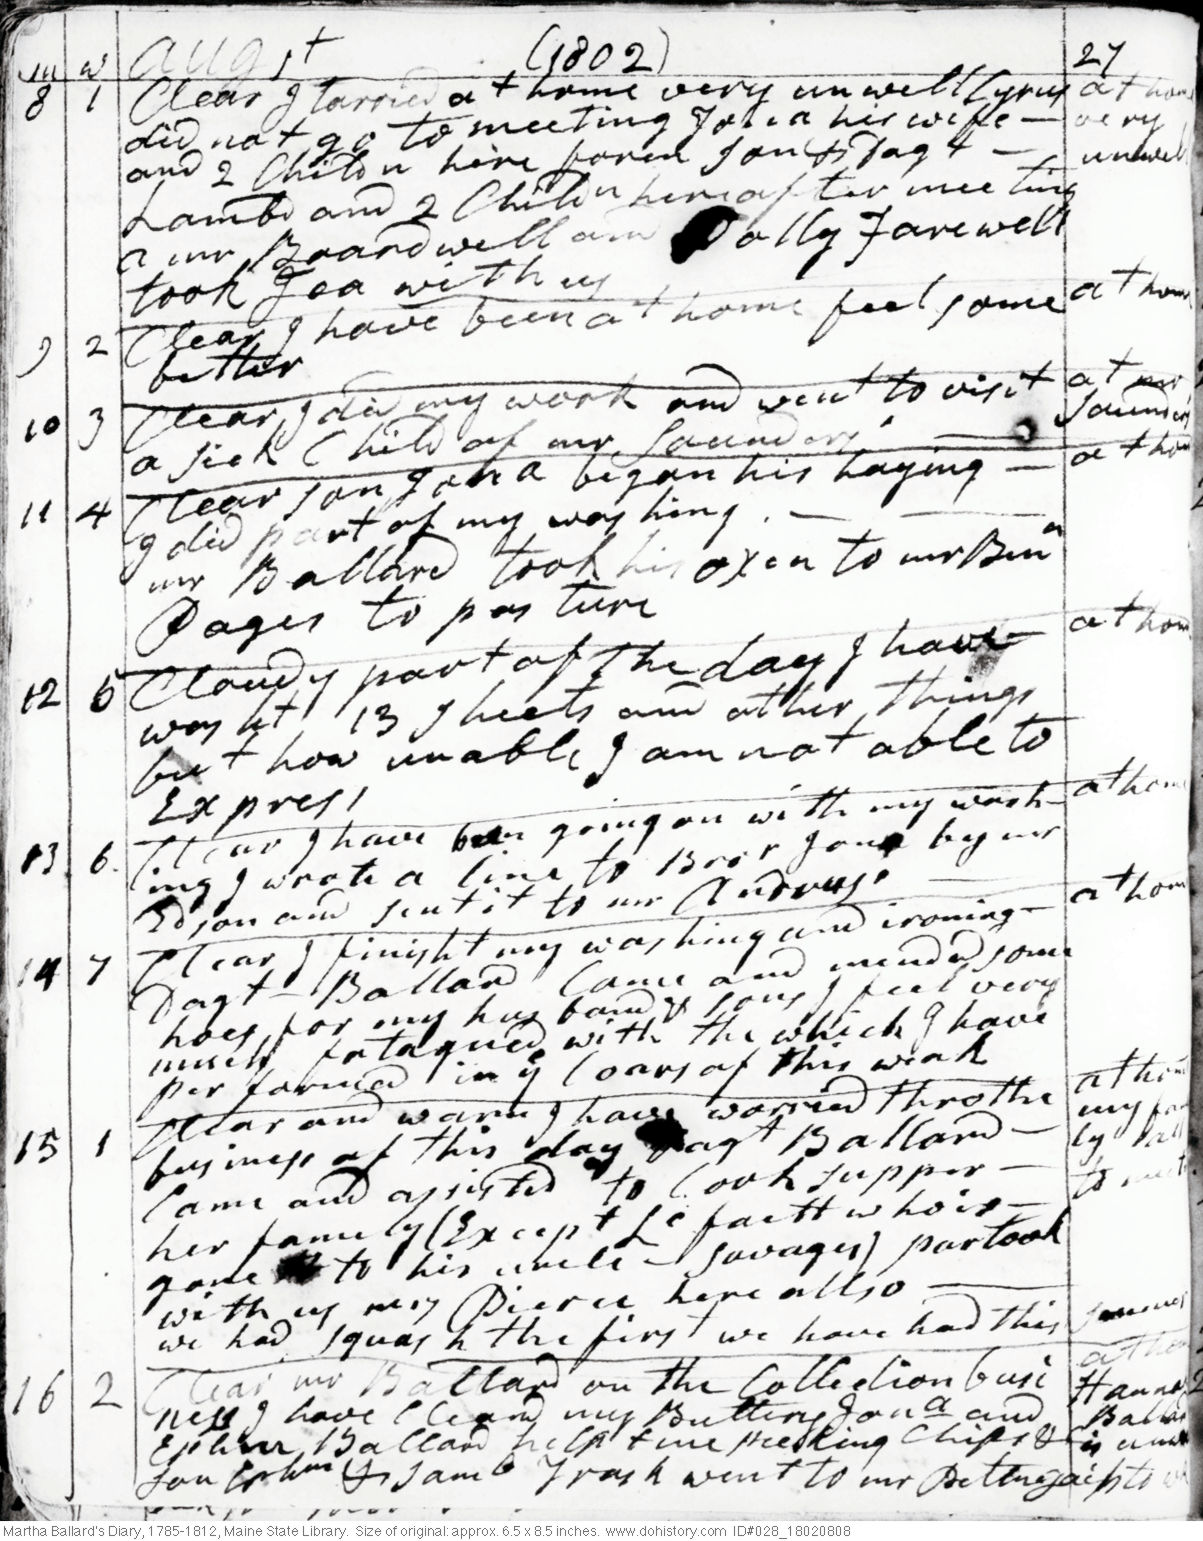 m w augst (1802) 27
8 1 Clear I tarried at home very unwell Cyrus at home
did not go to meeting Jona his wife – very
and 2 Childn here foren son & Dagt – unwell
Lambd and 2 Childn here after meeting
a mr Boardwell and Dolly Farewell
took Tea with us
9 2 Clear I have been at home feel some at home
better
10 3 Clear I did my work and went to visit at mr
a sick Child of mr Saunders' – Saunders
11 4 Clear son Jona began his haying – at home
I did part of my washing. –
mr Ballard took his oxen to mr Benn
Pages to pasture
12 5 Cloudy part of the day I have at home
washt 13 sheets and other things
but how unable I am not able to
Express
13 6 Clear I have been going on with my wash- at home
ing I wrote a line to Bror Jona by mr
Edson and sent it to mr Andrus. –
14 7 Clear I finisht my washing and ironing – at home
Dagt – Ballard Came and mended some
hoes for my husband & sons I feel very
much fatagued with the which I have
performed in ye Coars of this weak
15 1 Clear and warm I have worried thro the at home
business of this day Dagt Ballard – my fam
Came and assisted to Cook supper – ly all
her famely (Except Lafaett who is – to meet
gone to his uncle – Savages) partook
with us mrs Pierce here allso –
we had squash the first we have had this summer
16 2 Clear mr Ballard on the Collection busi at home
ness I have Cleand my Buttery Jona and Hannah
Ephm Ballard helpt me Peeking Chips & Ballard
son Ephm & Samb Trask went to mr Pettengails to